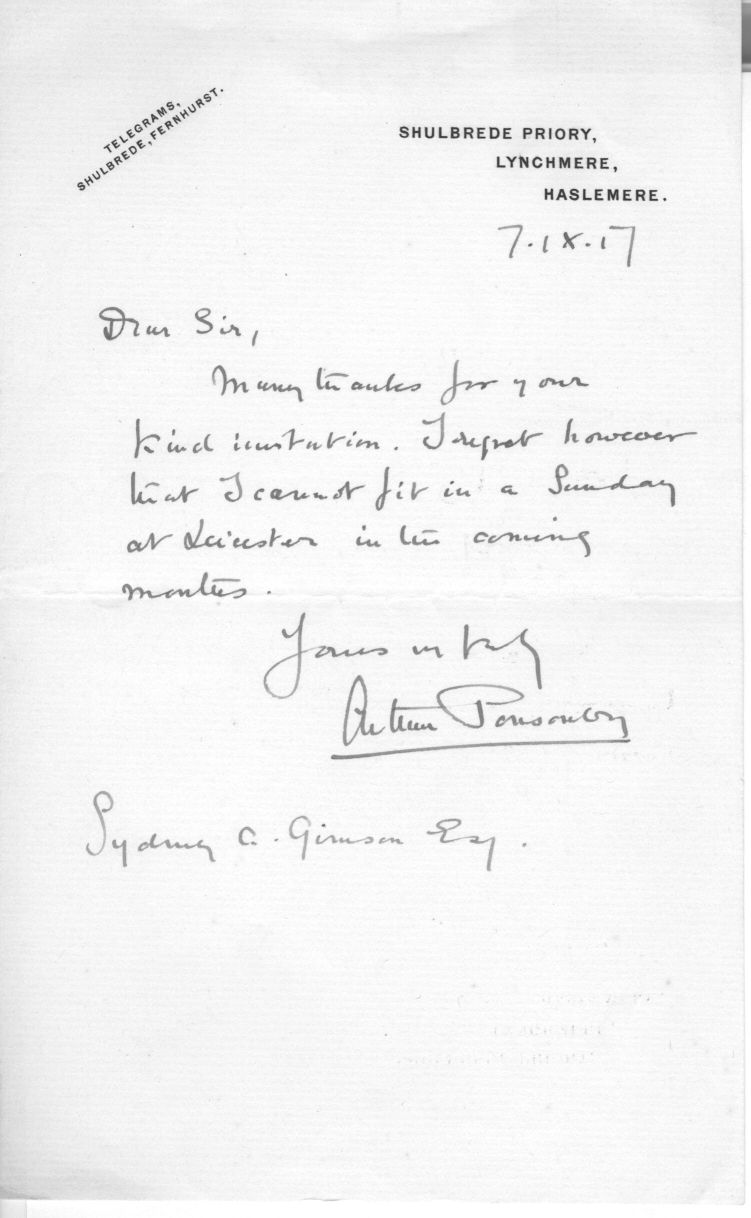 TELEGRAMS,
SHULBREDE, FERNHURST.
SHULBREDE PRIORY,
LYNCHMERE,
HASLEMERE.
7.IX.17
Dear Sir,
Many thanks for your
kind invitation. I regret however
that I cannot fit in a Sunday
at Leicester in the coming
months.
Yours truly
Arthur Ponsonby
Sydney A. Gimson Esq.